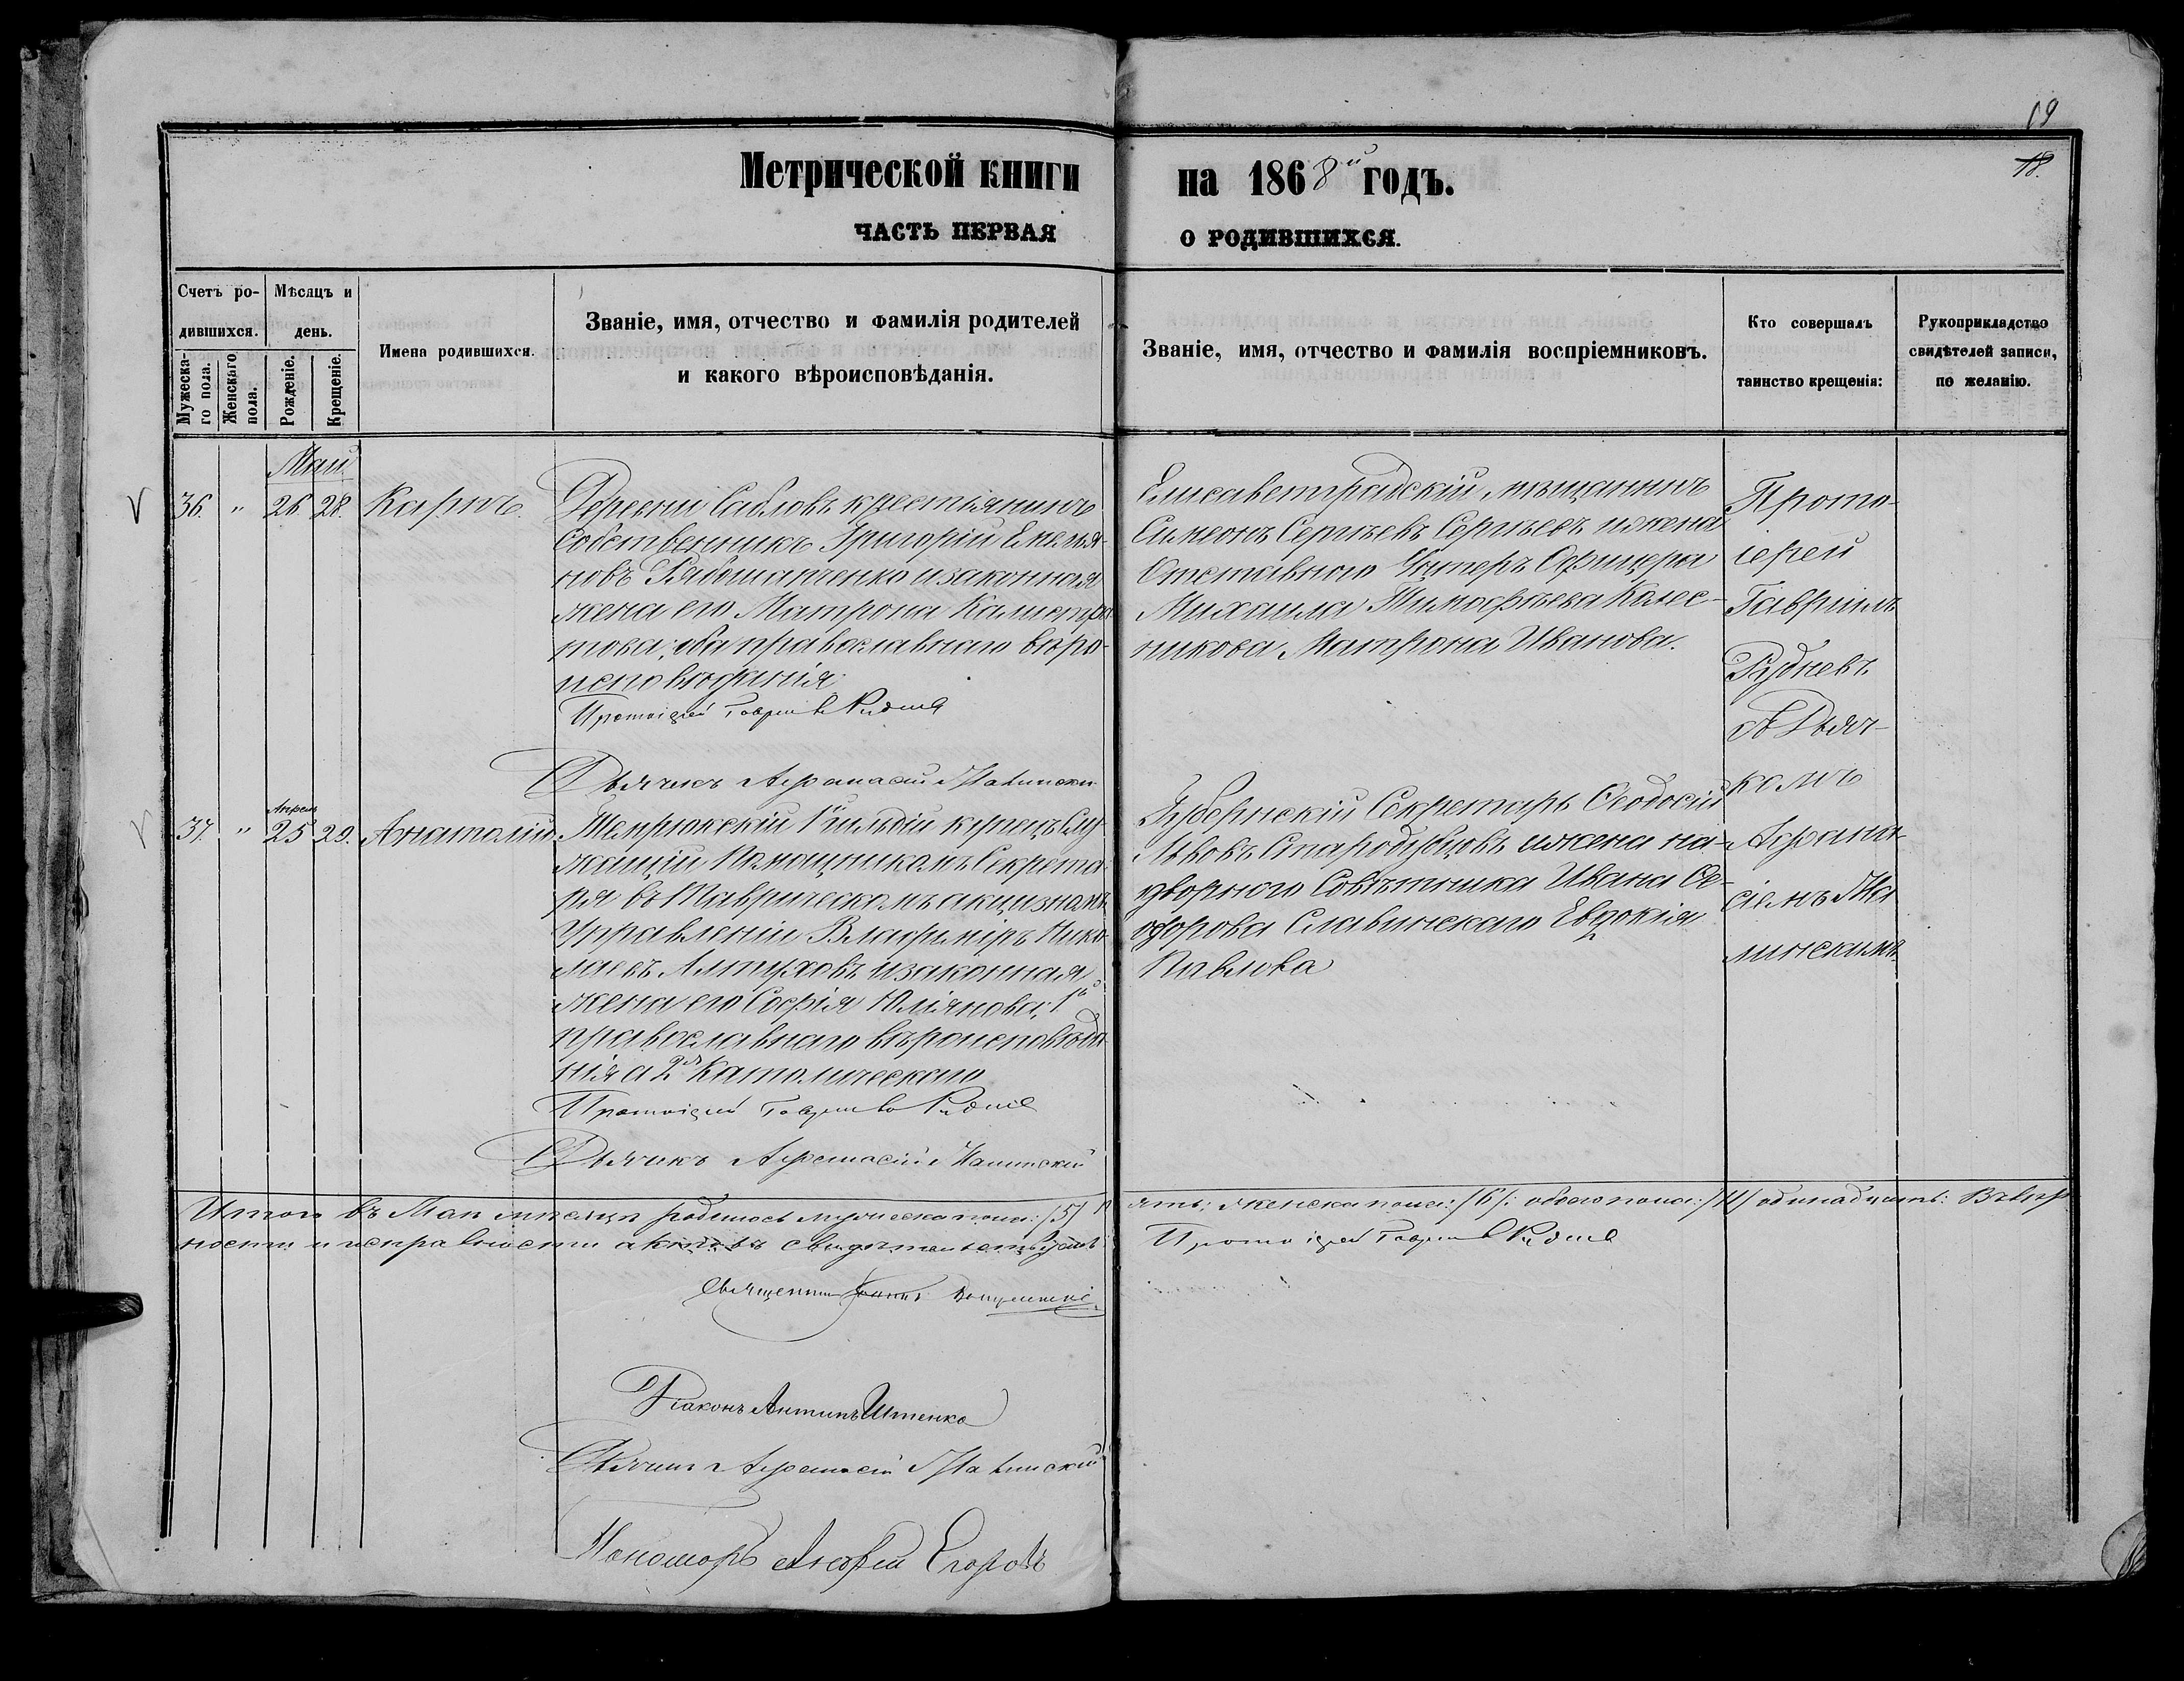 19
18.
Метрической книги на 1868й годъ.
ЧАСТЬ ПЕРВАЯ О РОДИВШИХСЯ.
Счетъ ро-
дившихся.
Мужеска-
го пола.
Женскаго
пола.
Мѣсяцъ и
день.
Рожденіе.
Крещеніе.
Имена родившихся.
Званіе, имя, отчество и фамилія родителей
и какого вѣроисповѣданія.
Званіе, имя, отчество и фамилія воспріемниковъ.
Кто совершалъ
таинство крещенія:
Рукоприкладство
свидѣтелей записи,
по желанію.
Май
36. " 26 28. Карпъ.
Деревни Сабловъ крестіянинъ
собственникъ Григорій Емелья-
новъ Рябошапченко и законная
жена его Матрона Калистра
това; оба православнаго вѣро-
исповѣданія
Протоіерей Гавріилъ Рудневъ
Дьячекъ Афанасій
Елисаветградскій мѣщанинъ
Симеонъ Сергѣевъ Сергѣевъ и жена
Отставнаго Унтеръ Офицера
Михаила Тимофѣева Колес-
никова Матрона Иванова.
Прото-
іерей
Гавріилъ
Рудневъ
съ Дьяч-
комъ
Афана-
сіемъ
линскимъ
Апрель
37. " 25 29. Анатолій
Темрюкскій 1й гильдіи купецъ Слу-
жащій Помощникомъ Секрета-
ря въ Таврическомъ акцизномъ
Управленіи Владиміръ Нико-
лаевъ Алтуховъ и законная
жена его Софія Юліянова; 1й
православнаго вѣроисповѣда-
нія а 2я Католическаго
Протоіерей Гавріилъ Рудневъ
Дьячекъ Афанасій
Губернскій Секретарь Ѳеодосій
Львовъ Стародубцовъ и жена на-
дворнаго Совѣтника Ивана Ѳе-
одорова Славинскаго Евдокія
Павлова
Итого въ Маѣ мѣсяцѣ родилось мужеска пола: /5/ пять; женска пола: /6/: обоего пола: /11/ одинадцать: Въ вѣр
ности и исправности актовъ свидѣтельствуемъ: Протоіерей Гавріилъ Рудневъ
Священникъ Іоаннъ
Діаконъ Антипъ Итенко
Дьячекъ Афанасій
Пономарь Андрей Егоровъ